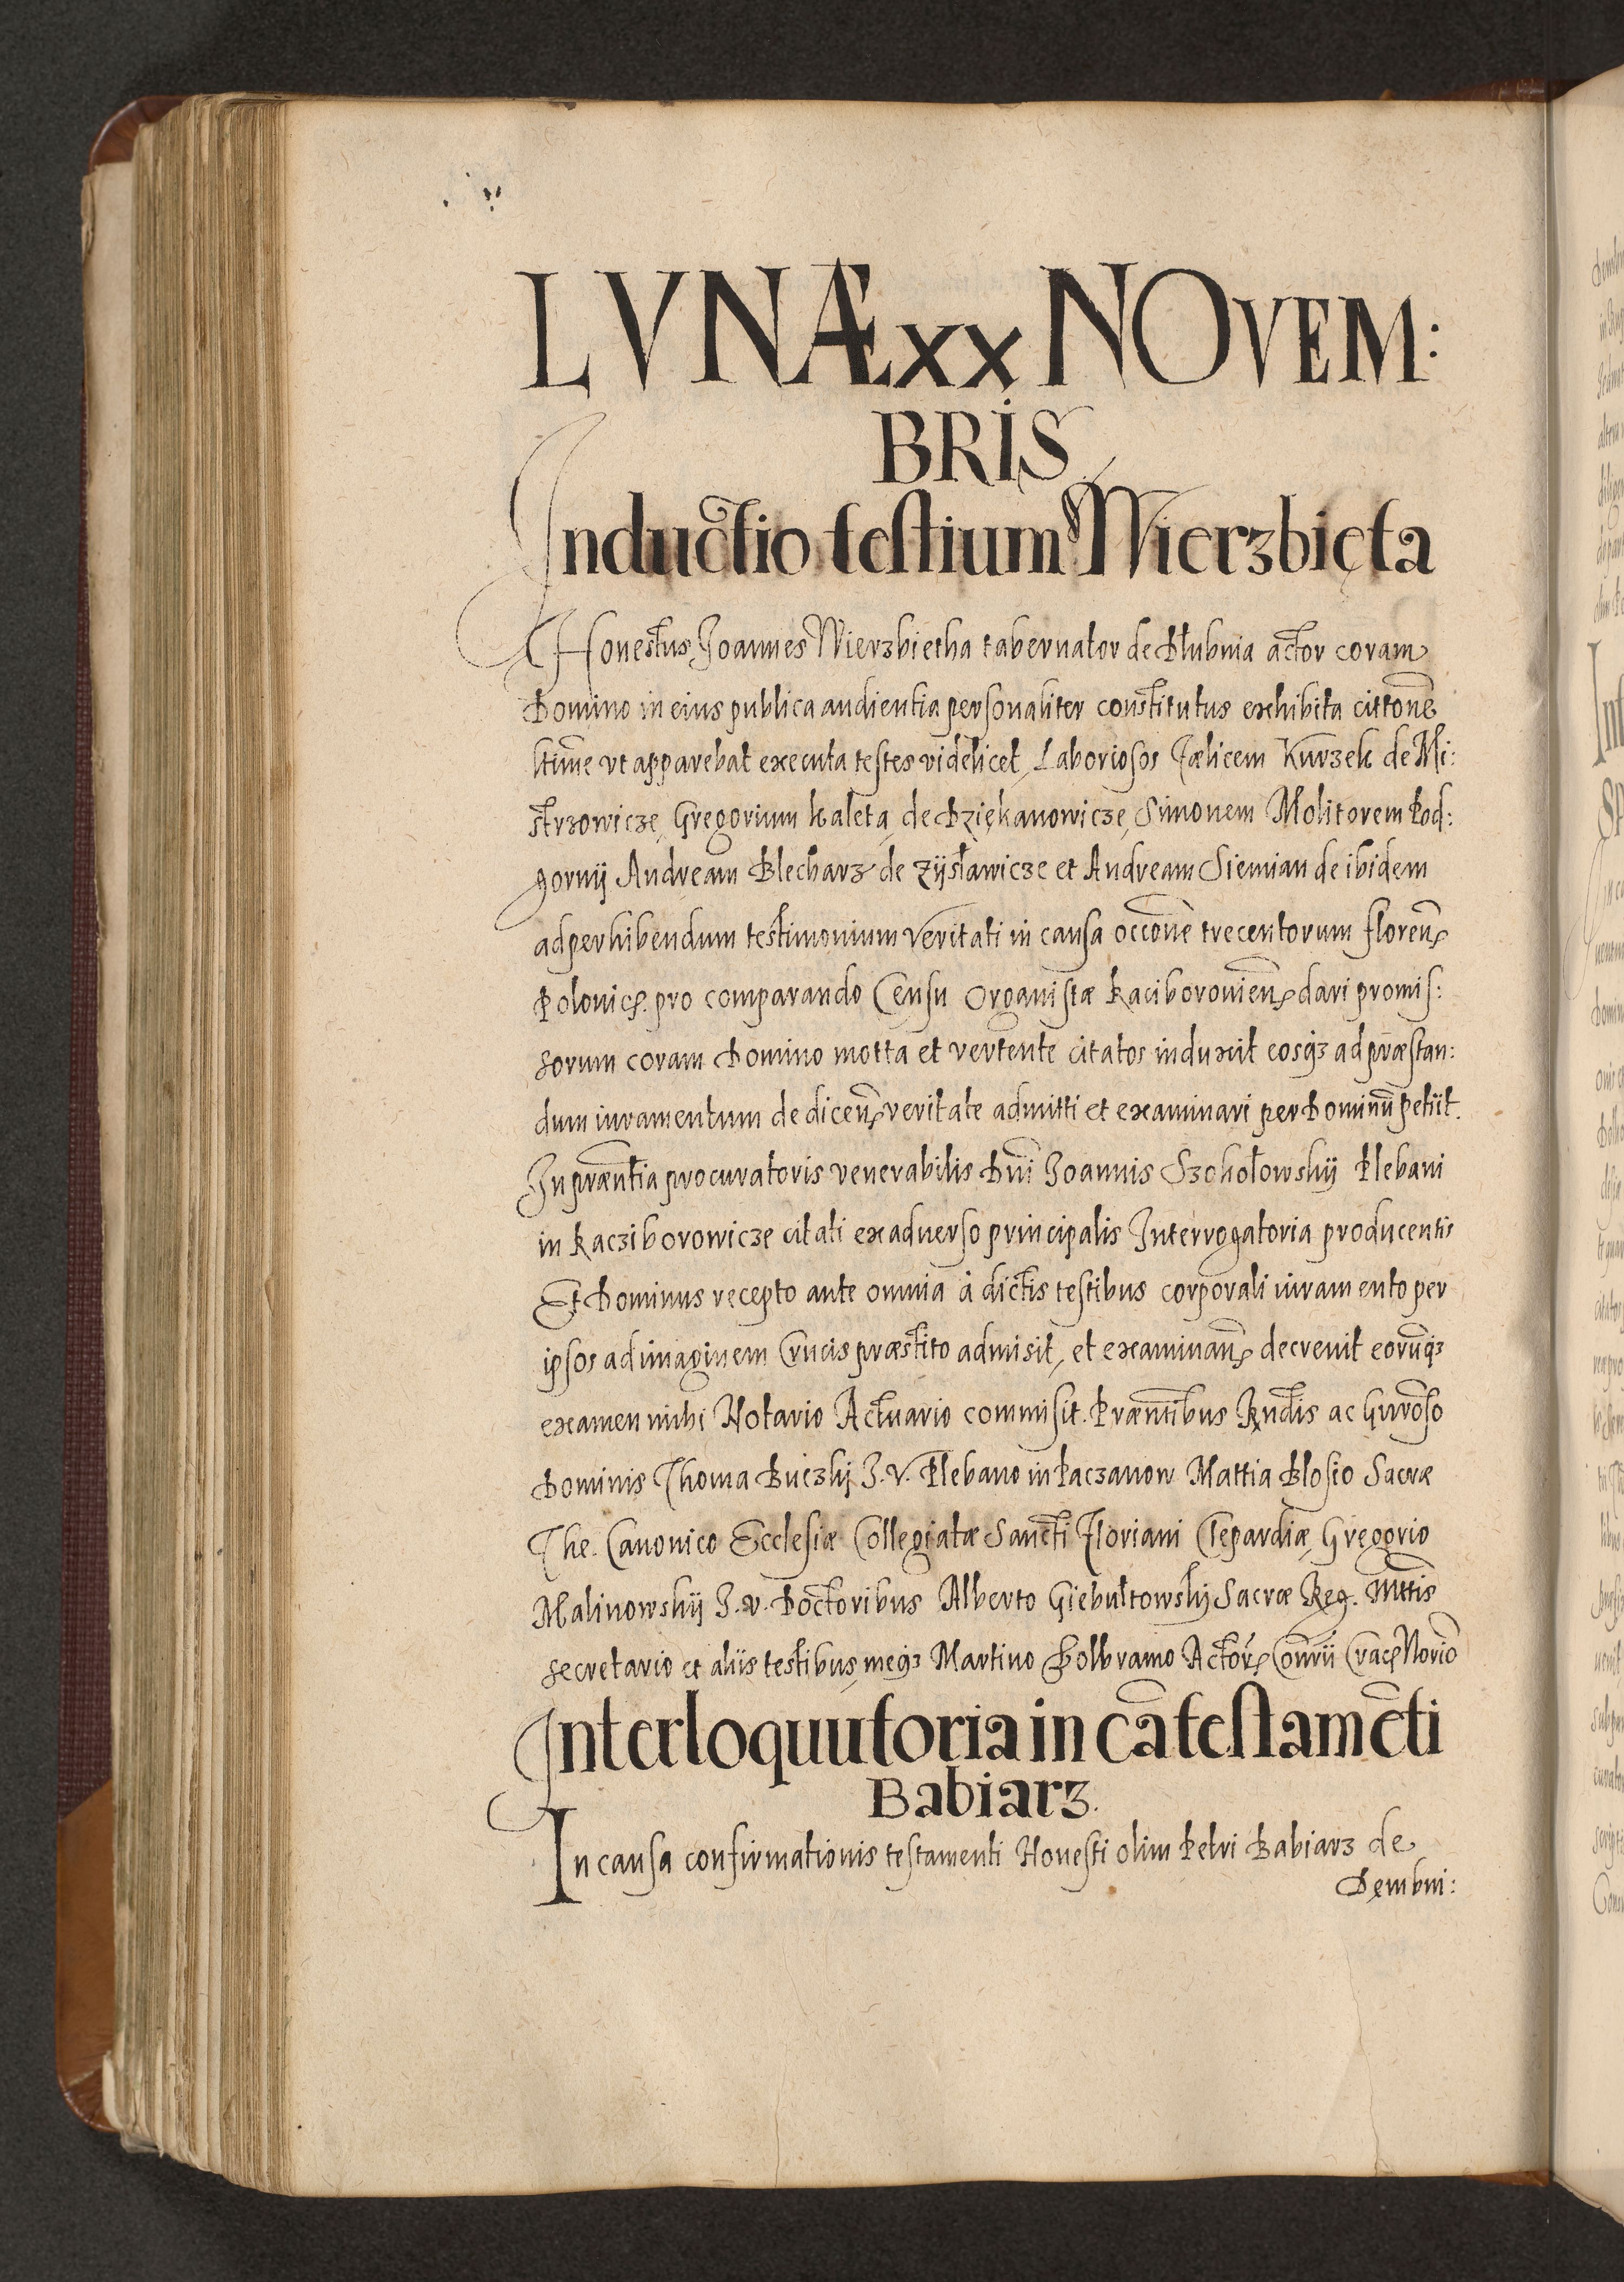 LVNÆ xx NOVEM:
BRIS
Inductio testium Wierzbięta
Honestus Joannes Wierzbietha tabernator de Płubnia actor coram
Domino in eius publica audientia personaliter constitutus exhibita cittone
ltime vt apparebat executa testes videlicet Laboriosos Fælicem Kurzek de Mi:
strzowicze, Gregorium kaleta, de Dziękanowicze, Simonem Molitorem Pod:
gornÿ Andream Blecharz de Zÿsławicze et Andream Siemian de ibidem
ad perhibendum testimonium veritati in causa occone trecentorum floren
Polonic. pro comparando Censu Organistæ Raciborouien dari promis:
sorum coram Domino motta et vertente citatos induxit eosqz ad præstan:
dum iuramentum de dicen veritate admitti et examinari per Dominũ petiit.
In præntia procuratoris venerabilis Dni Joannis Szokołowskÿ Plebani
in Racziborowicze citati ex aduerso principalis Interrogatoria producentis
Et Dominus recepto ante omnia à dictis testibus corporali iuramento per
ipsos ad imaginem Crucis præstito admisit, et examinan decreuit eorũqz
examen michi Notario Actuario commisit. Præntibus Rndis ac Gnroso
Dominis Thoma Buczkÿ J. V. Plebano in Paczanow Mattia Blosio Sacræ
The. Canonico Ecclesiæ Collegiatæ Sancti Floriani Clepardiæ, Gregorio
Malinowskÿ J. v. Doctoribus Alberto Giebułtowskÿ Sacræ Reg. Mttis
secretario et aliis testibus, meqz Martino Dolbramo Actor Conrii Crac Norio
Interloquutoria in cã testamẽti
Babiarz.
In causa confirmationis testamenti Honesti olim Petri Babiarz de
Dęmbni: